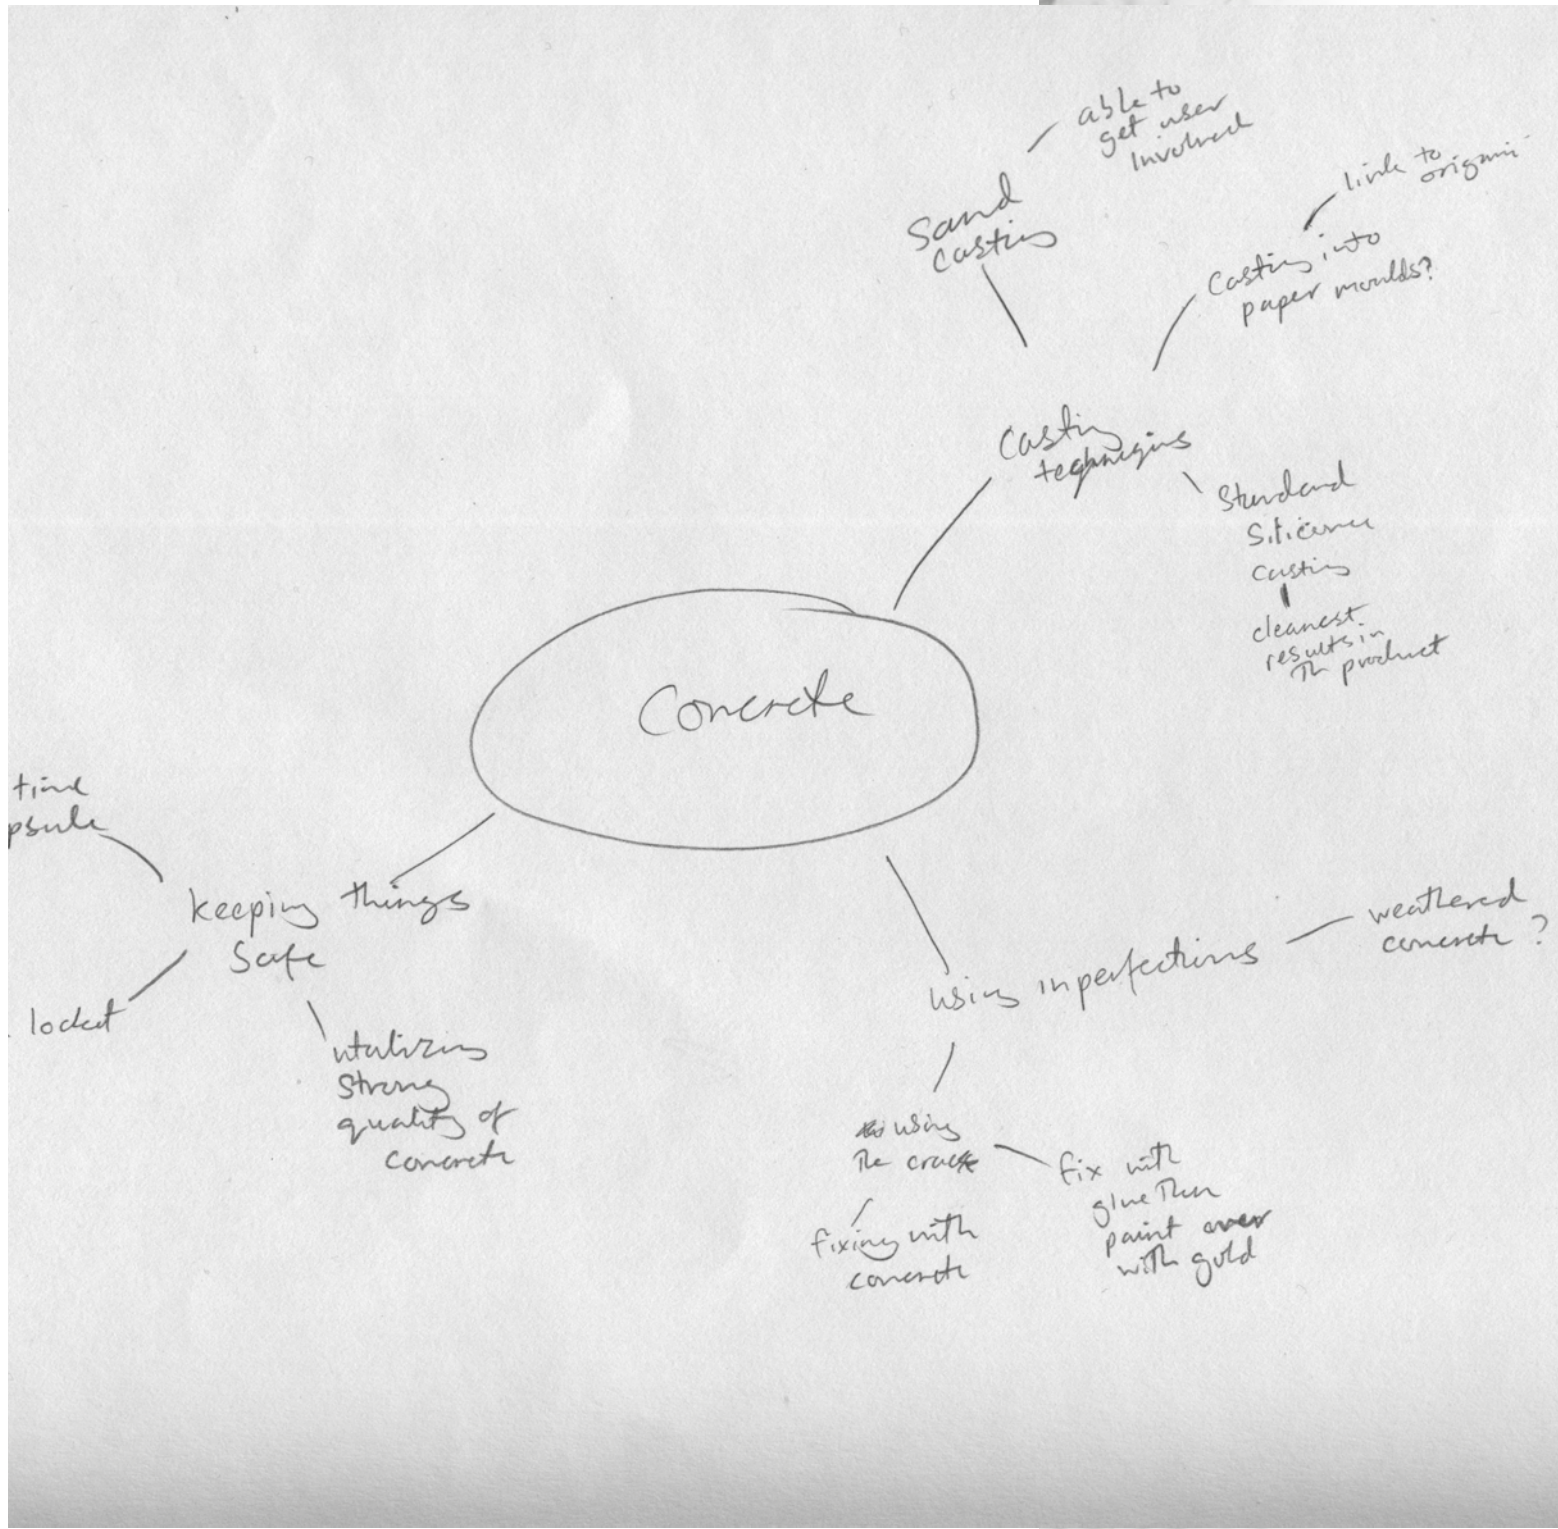 able to
get user
involved
link to
origami
Sand
casting
Casting into
paper moulds?
Casting
Standard
Silicone
casting
cleanest
results in
the product
Concrete
time
psule
keeping things
safe
locket
utalizing
strong
quality of
concrete
using inperfections
weathered
concrete?
using
the crack
fixing with
concrete
fix with
glue then
paint over
with gold